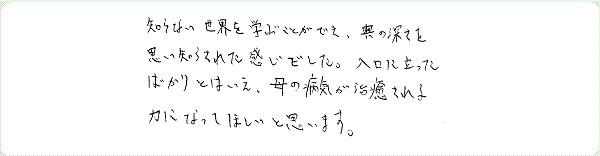 知らない世界を学ぶことができ、奥の深さを
思い知らされた感じでした。入口に立った
ばかりとはいえ、母の病気が治癒される
力になってほしいと思います。